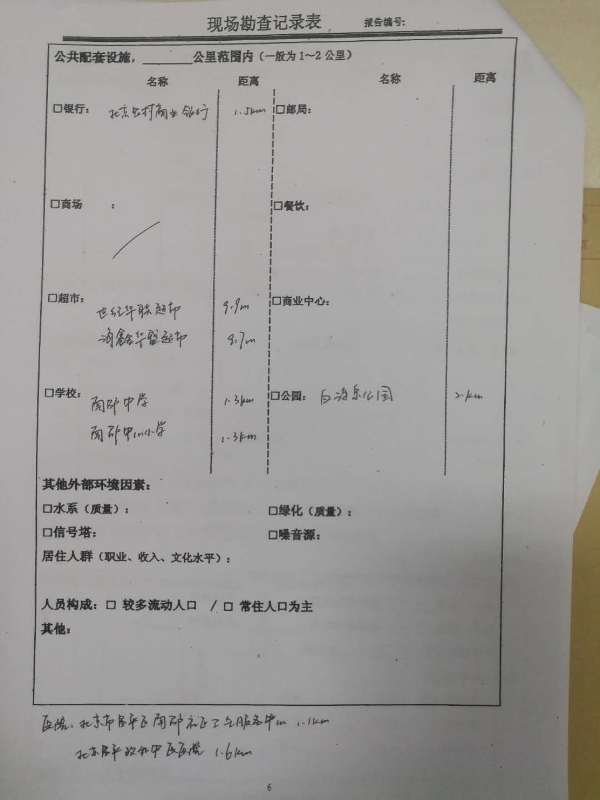 现场勘查记录表 报告编号:
公共配套设施,______公里范围内(一般为1~2公里)
名称 距离 名称 距离
□银行: 北京农村商业银行 1.5km □邮局:
□商场 : □餐饮:
□超市: 世纪华联超市 □商业中心:
华盟超市
□学校: 南邵中学 1.3km □公园: 白浮泉公园 2.1km
南邵中心小学 1.3km
其他外部环境因素:
□水系(质量): □绿化(质量):
□信号塔: □噪音源:
居住人群(职业、收入、文化水平):
人员构成: □ 较多流动人口 / □ 常住人口为主
其他:
医院: 北京市昌平区南邵社区卫生服务中心 1.1km
北京昌平 中医医院 1.6km
6